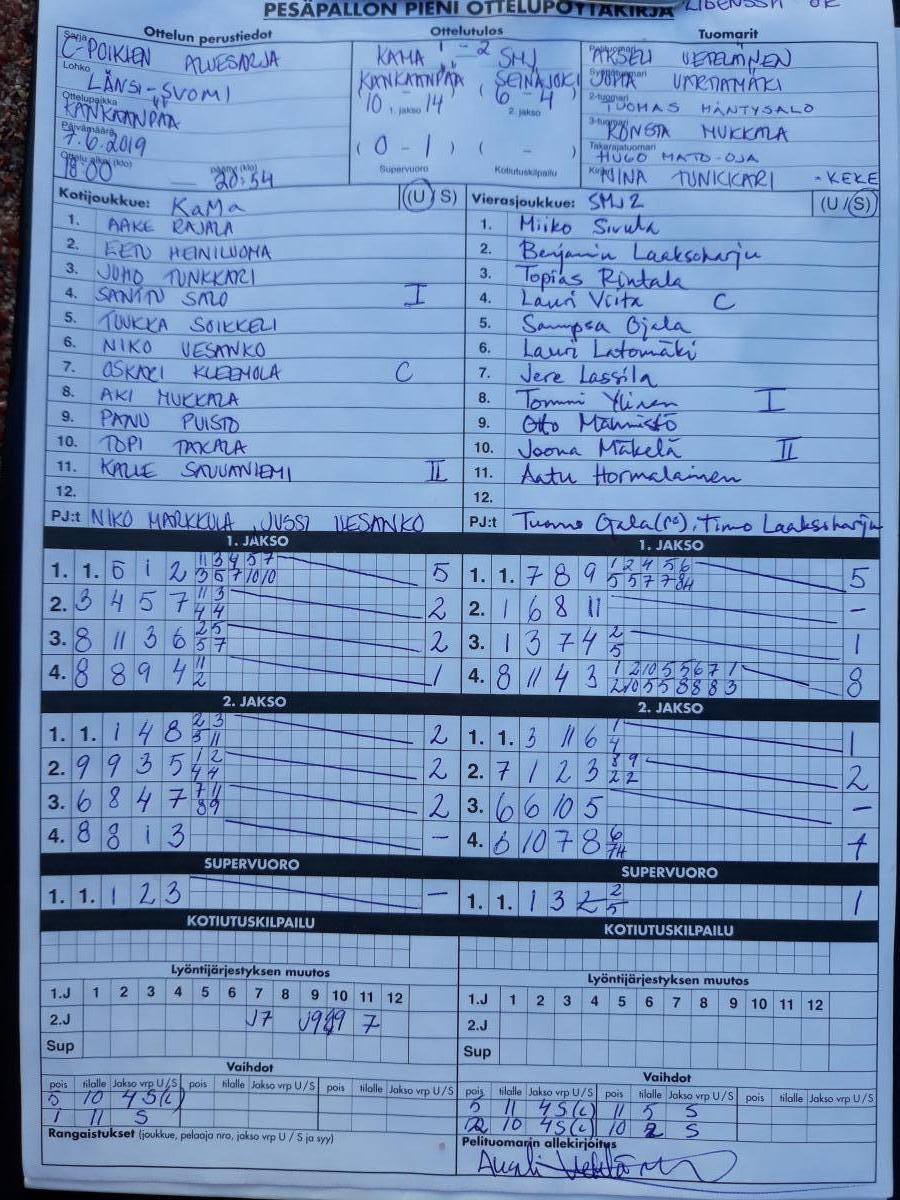 PESÄPALLON PIENI OTTELUPÖYTÄKIRJA
Ottelun perustiedot
Ottelutulos
Tuomarit
Sarja C-POIKIEN ALUESARJA
Lohko LÄNSI-SUOMI
Ottelupaikka KANKAANPÄÄ
Päivämäärä 7.6.2019
18:00 20:54
KAMA 1 - 2 SMJ
KANKAANPÄÄ SEINÄJOKI
10 - 14 ( 6 - 4
1. jakso 2. jakso
( 0 - 1 ) ( - )
Supervuoro Kotiutuskilpailu
VARTIAMÄKI
2-tuomari TUOMAS MÄNTYSALO
3-tuomari MUKKALA
Takarajatuomari HUGO MATO-OJA
MINA TUNKKARI - KEKE
Kotijoukkue: KaMa (U / S)
1. AAKE RAJALA
2. EETU HEINILUOMA
3. JUHO TUNKKARI
4. SANTTU SALO I
5. TUUKKA SOIKKELI
6. NIKO VESANKO
7. OSKARI KLEEMOLA C
8. AKI MUKKALA
9. PANU PUISTO
10. TOPI TAKALA
11. KALLE SAVUANIEMI II
12.
PJ:t NIKO MARKKULA, JUSSI VESANKO
Vierasjoukkue: SMJ 2 (U / S)
1. Miiko Sivula
2. Benjamin Laaksoharju
3. Topias Rintala
4. Lauri Viita C
5. Sampsa Ojala
6. Lauri Latomäki
7. Jere Lassila
8. Tommi Ylinen I
9. Otto Männistö
10. Joona Mäkelä II
11. Aatu Hormalainen
12.
PJ:t Tuomo Ojala (PS), Timo Laaksoharju
1. JAKSO
1. 1. 6 1 2 11 3 4 5 7 5
3 5 7 10 10
2. 3 4 5 7 11 3 2
4 4
3. 8 11 3 6 2 5 2
5 7
4. 8 8 9 4 11 1
2
1. JAKSO
1. 1. 7 8 9 1 2 4 5 6 5
5 5 7 7
2. 1 6 8 11 -
3. 1 3 7 4 2 1
5
4. 8 11 4 3 1 2 10 5 5 6 7 1 8
2 10 5 5 8 8 8 3
2. JAKSO
1. 1. 1 4 8 2 3 2
5 11
2. 9 9 3 5 1 2 2
4 4
3. 6 8 4 7 7 11 2
8 9
4. 8 8 1 3 -
2. JAKSO
1. 1. 3 11 6 1 1
4
2. 7 1 2 3 8 9 2
2 2
3. 6 6 10 5 -
4. 6 10 7 8 6
SUPERVUORO
1. 1. 1 2 3 -
SUPERVUORO
1. 1. 1 3 2 2 1
5
KOTIUTUSKILPAILU
KOTIUTUSKILPAILU
Lyöntijärjestyksen muutos
1.J 1 2 3 4 5 6 7 8 9 10 11 12
2.J J7 7
Sup
Lyöntijärjestyksen muutos
1.J 1 2 3 4 5 6 7 8 9 10 11 12
2.J
Sup
Vaihdot
pois tilalle Jakso vrp U/S pois tilalle Jakso vrp U/S pois tilalle Jakso vrp U/S
5 10 4S(L)
1 11 S
Rangaistukset (joukkue, pelaaja nro, jakso vrp U / S ja syy)
Vaihdot
pois tilalle Jakso vrp U/S pois tilalle Jakso vrp U/S pois tilalle Jakso vrp U/S
5 11 4S(L) 11 5 S
2 10 4S(L) 10 2 S
Pelituomarin allekirjoitus